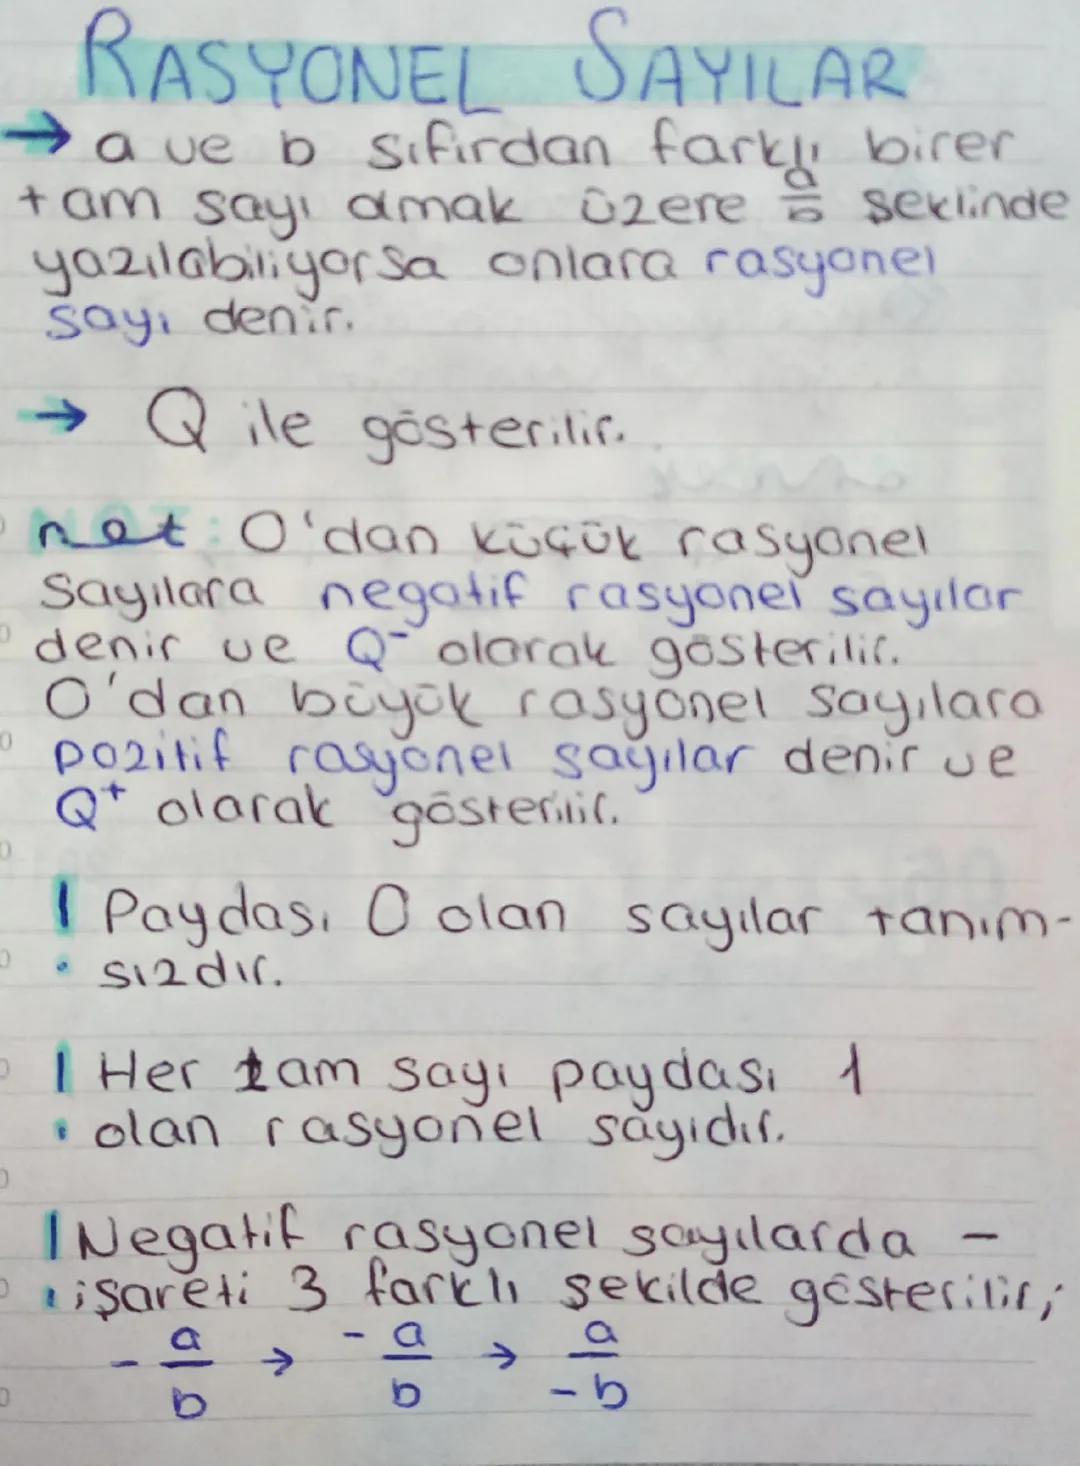 RASYONEL SAYILAR
→ a ve b sıfırdan farklı birer
tam sayı olmak üzere a/b şeklinde
yazılabiliyorsa onlara rasyonel
sayı denir.
→ Q ile gösterilir.
not: 0'dan küçük rasyonel
sayılara negatif rasyonel sayılar
denir ve Q⁻ olarak gösterilir.
0'dan büyük rasyonel sayılara
pozitif rasyonel sayılar denir ve
Q⁺ olarak gösterilir.
! Paydası 0 olan sayılar tanım-
sızdır.
! Her tam sayı paydası 1
olan rasyonel sayıdır.
! Negatif rasyonel sayılarda -
işareti 3 farklı şekilde gösterilir;
- a/b → -a/b → a/-b